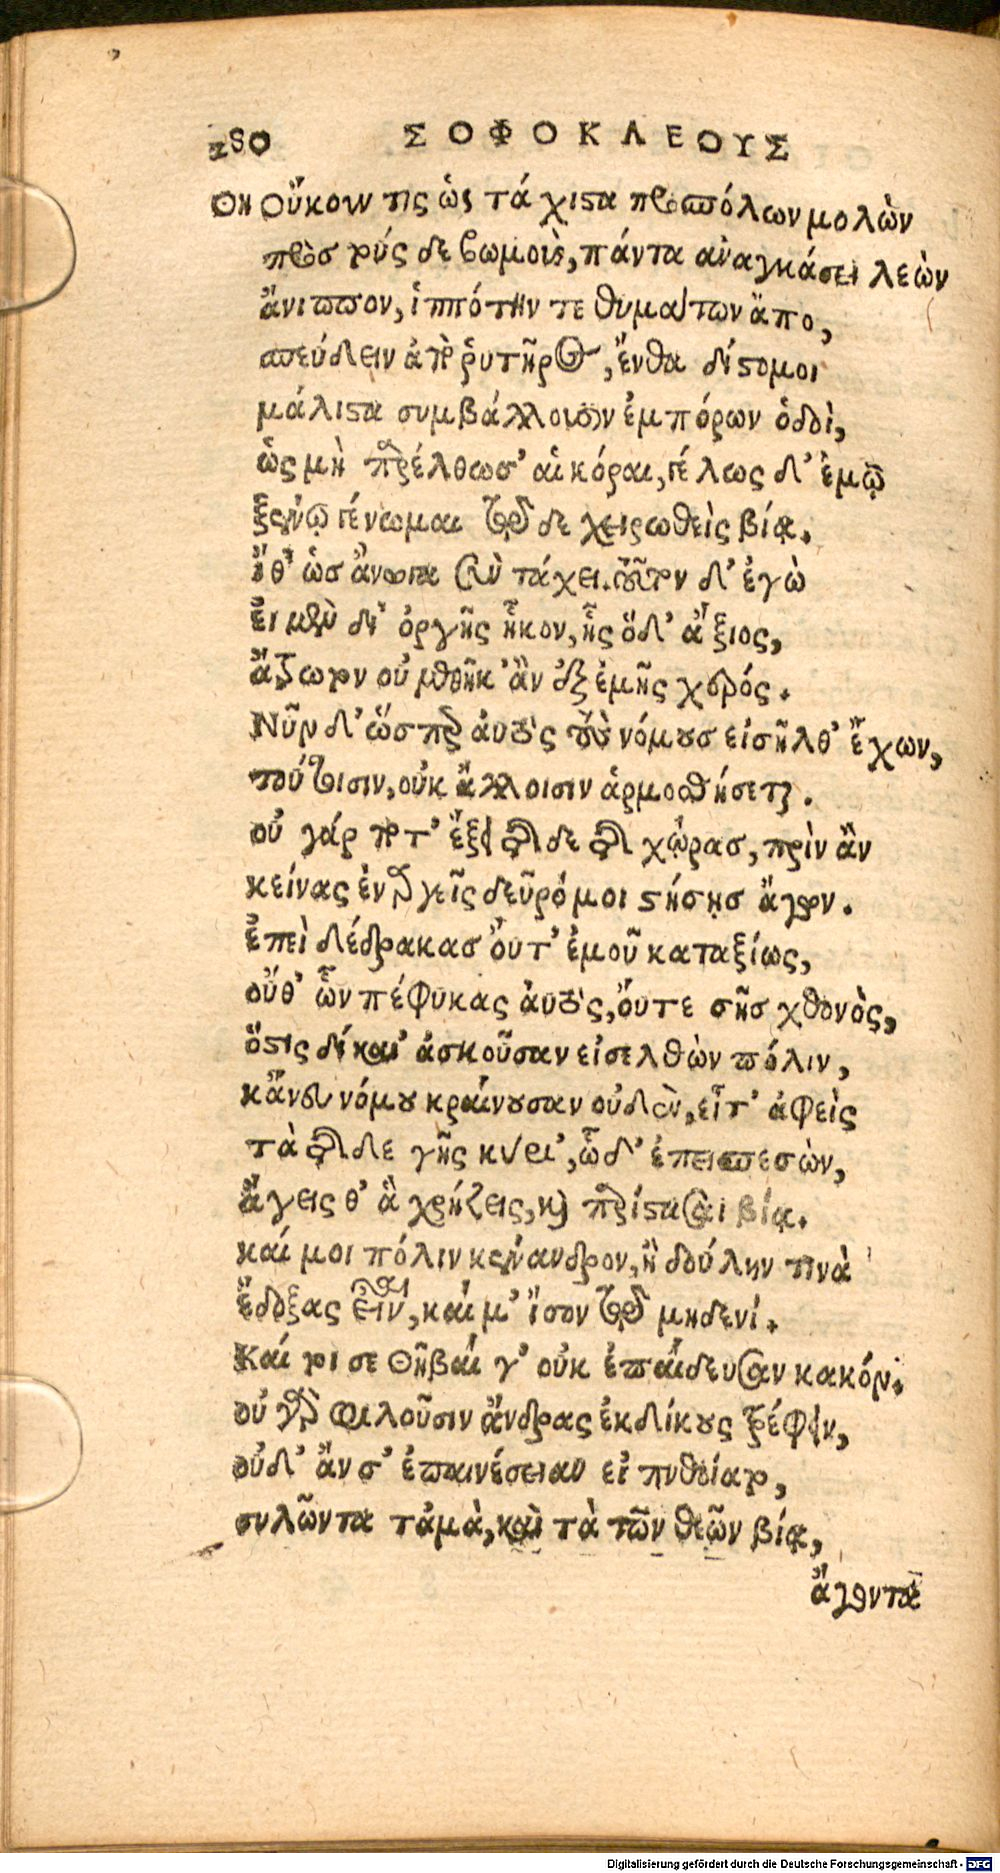 280 ΣΟΦΟΚΛΕΟΥΣ
Θη Οὔκουν τις ὡς τάχιστα προσπόλων μολὼν
πρὸσ τούς δε βωμοὺς, πάντα ἀναγκάσει λεὼν
ἄνιππον, ἱππότην τε θυμάτων ἄπο,
σπεύδειν ἀπὸ ῥυτῆρος, ἔνθα δίστομοι
μάλιστα συμβάλλουσιν ἐμπόρων ὁδοὶ,
ὡς μὴ παρέλθωσ' αἱ κόραι, γέλως δ' ἐμῷ
ξένῳ γένωμαι τῷ δε χειρωθεὶς βίᾳ.
ἴθ' ὡσ ἄνωγα σὺν τάχει. τοῦτον δ' ἐγὼ
Εἰ μὲν δι' ὀργῆς ἧκον, ἧς ὅδ' ἄξιος,
ἄτρωτον οὐ μεθῆκ' ἂν ἐξ ἐμῆς χερός.
Νῦν δ' ὥσπερ αὐτὸς τοὺς νόμουσ εἰσῆλθ' ἔχων,
τούτοισιν, οὐκ ἄλλοισιν ἁρμοσθήσεται.
οὐ γάρ ποτ' ἔξει τῆσδε τῆς χώρασ, πρὶν ἂν
κείνας ἐναργεῖς δεῦρό μοι στήσῃσ ἄγων.
Ἐπεὶ δέδρακασ οὔτ' ἐμοῦ καταξίως,
οὔθ' ὧν πέφυκας αὐτὸς, οὔτε σῆσ χθονὸς,
ὅστις δίκαι' ἀσκοῦσαν εἰσελθὼν πόλιν,
κἄνευ νόμου κραίνουσαν οὐδὲν, εἶτ' ἀφεὶς
τὰ τῆσδε γῆς κύρι', ὧδ' ἐπεισπεσὼν,
ἄγεις θ' ἃ χρῄζεις, καὶ παρίστασαι βίᾳ.
καί μοι πόλιν κένανδρον, ἢ δούλην τινὰ
ἔδοξας εἶναι, καί μ' ἴσον τῷ μηδενί.
Καί τοι σε Θῆβαί γ' οὐκ ἐπαίδευσαν κακόν.
οὐ γὰρ φιλοῦσιν ἄνδρας ἐκδίκους τρέφειν,
οὐδ' ἄν σ' ἐπαινέσειαν εἰ πυθοίατο,
συλῶντα τἀμὰ, καὶ τὰ τῶν θεῶν βίᾳ,
ἄγοντα
Digitalisierung gefördert durch die Deutsche Forschungsgemeinschaft - DFG